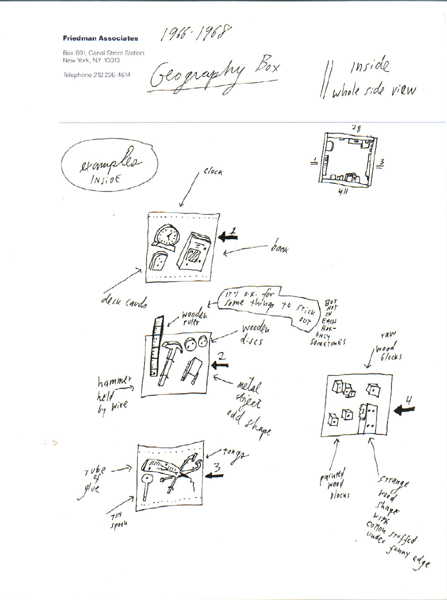 Friedman Associates
Box 691, Canal Street Station
New York, NY 10013
Telephone 212 226-4614
1966-1968
Geography Box
Inside
whole side view
211
1
3
411
examples
INSIDE
clock
1
book
deck cards
IT'S O.K. for
some things to STICK
OUT
BUT
NOT
IN
EACH
BOX-
ONLY
SOMETIMES
wooden
ruler
wooden
discs
2
hammer
held
by wire
metal
object
odd shape
raw
wood
blocks
4
painted
wood
blocks
strange
wood
shape
with
cotton stuffed
under funny edge
tongs
3
tube
of
glue
tin
spoon